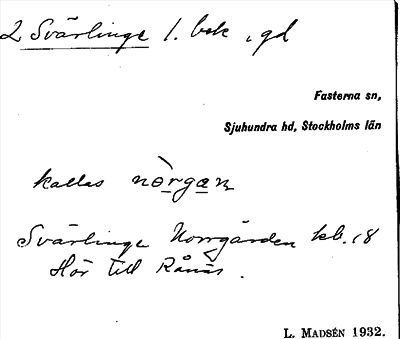 2 Svärlinge 1. bsk, gd
Fasterna sn,
Sjuhundra hd, Stockholms län
kallas nòrgan
Svärlinge Norrgården kb. 18
Hör till Rånäs.
L. MADSÉN 1932.